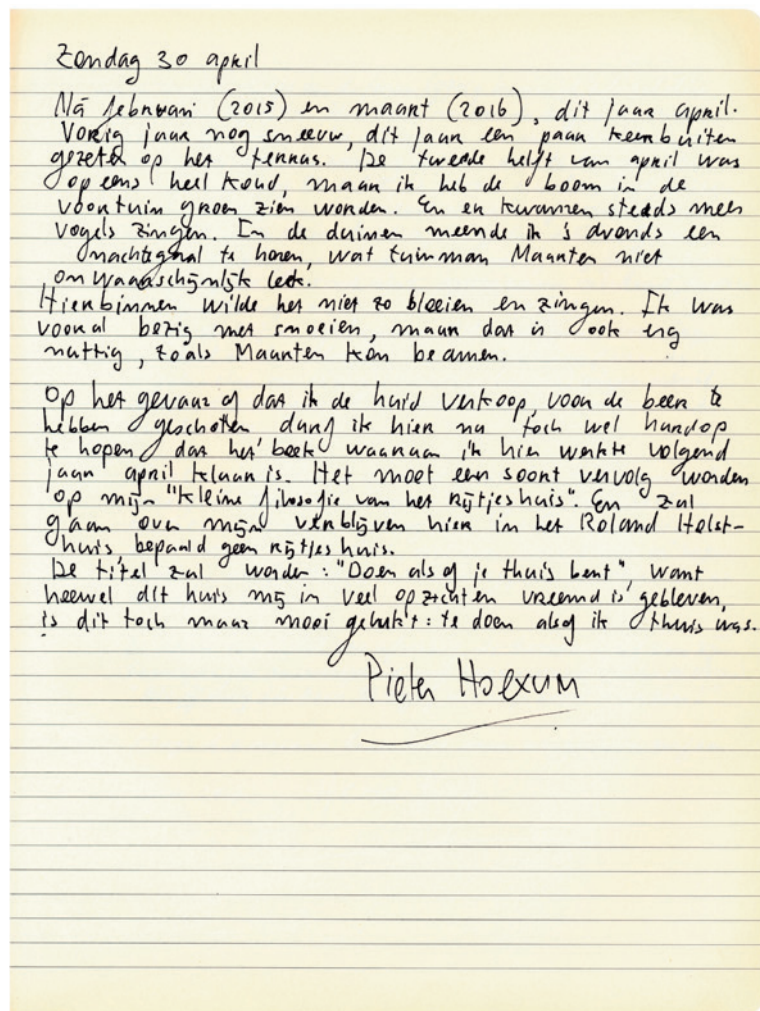 Zondag 30 april
Ná februari (2015) en maart (2016), dit jaar april.
Vorig jaar nog sneeuw, dit jaar een paar keer buiten
gezeten op het terras. De tweede helft van april was
opeens heel koud, maar ik heb de boom in de
voortuin groen zien worden. En er kwamen steeds meer
vogels zingen. In de duinen meende ik 's avonds een
nachtegaal te horen, wat tuinman Maarten niet
onwaarschijnlijk leek.
Hierbinnen wilde het niet zo bloeien en zingen. Ik was
vooral bezig met snoeien, maar dat is ook erg
nuttig, zoals Maarten kon beamen.
Op het gevaar af dat ik de huid verkoop voor de beer te
hebben geschoten durf ik hier nu toch wel hardop
te hopen dat het boek waaraan ik hier werkte volgend
jaar april klaar is. Het moet een soort vervolg worden
op mijn "Kleine filosofie van het rijtjeshuis". En zal
gaan over mijn verblijven hier in het Roland Holst-
huis, bepaald geen rijtjeshuis.
De titel zal worden: "Doen alsof je thuis bent", want
hoewel dit huis mij in veel opzichten vreemd is gebleven,
is dit toch maar mooi gelukt: te doen alsof ik thuis was.
Pieter Hoexum